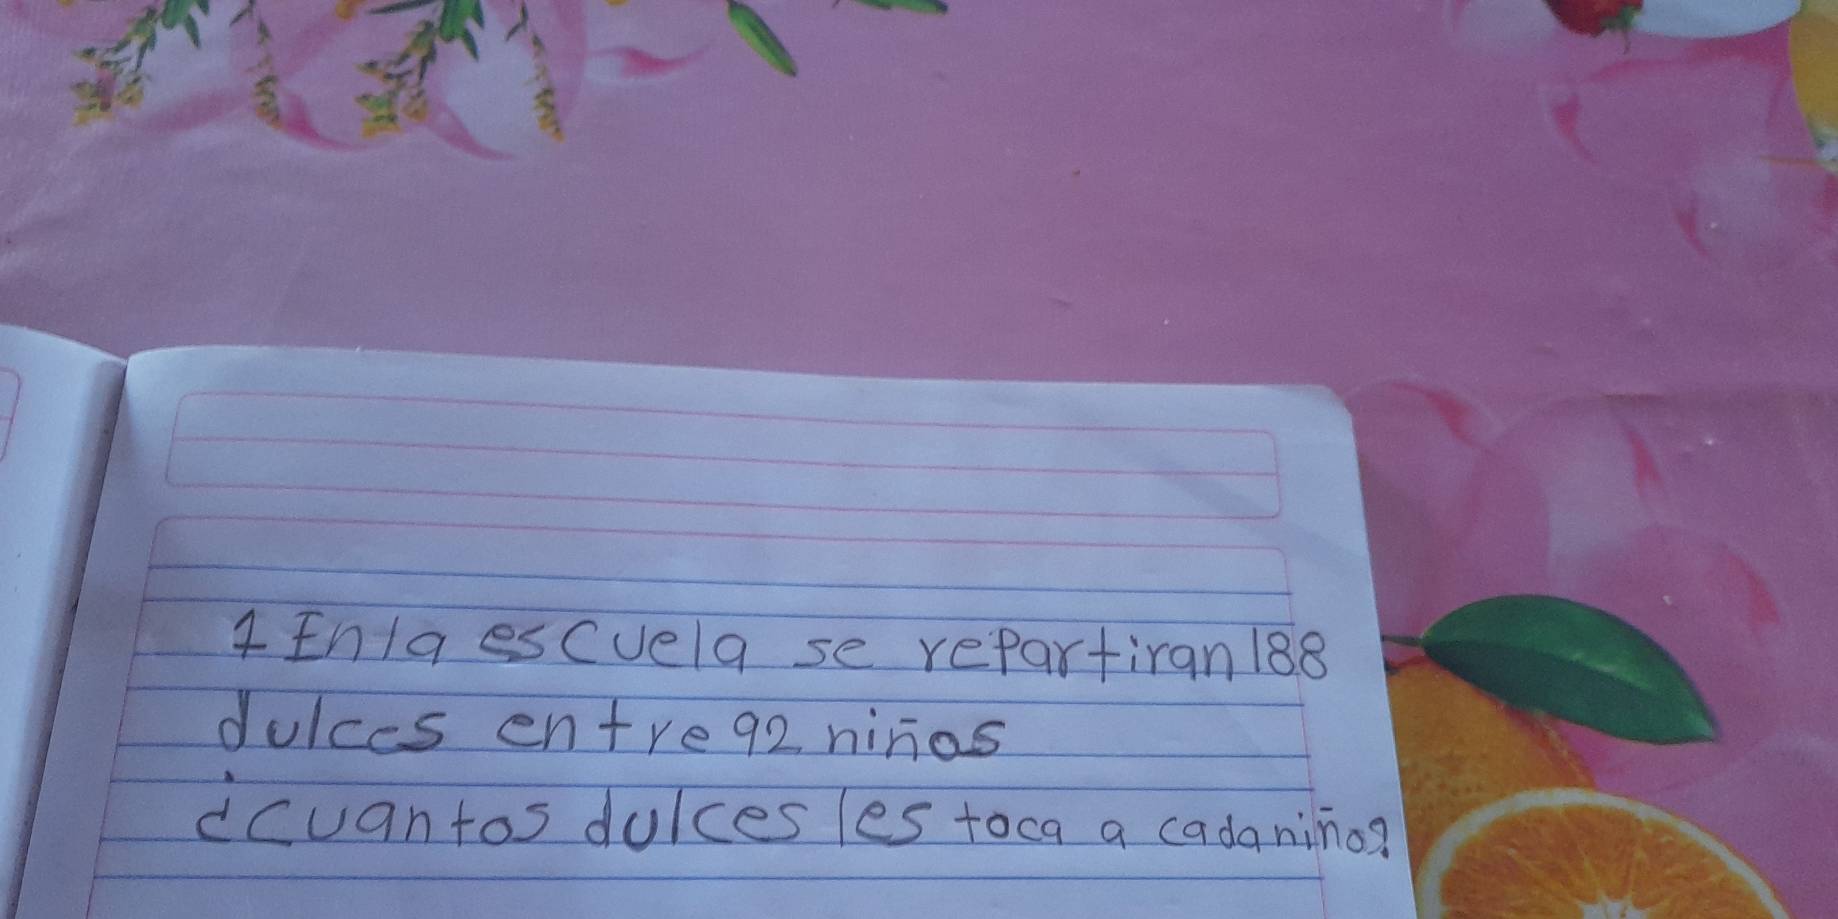 1 En la escuela se repartiran 188
dulces entre 92 niños
¿cuantos dulces les toca a cada niño?